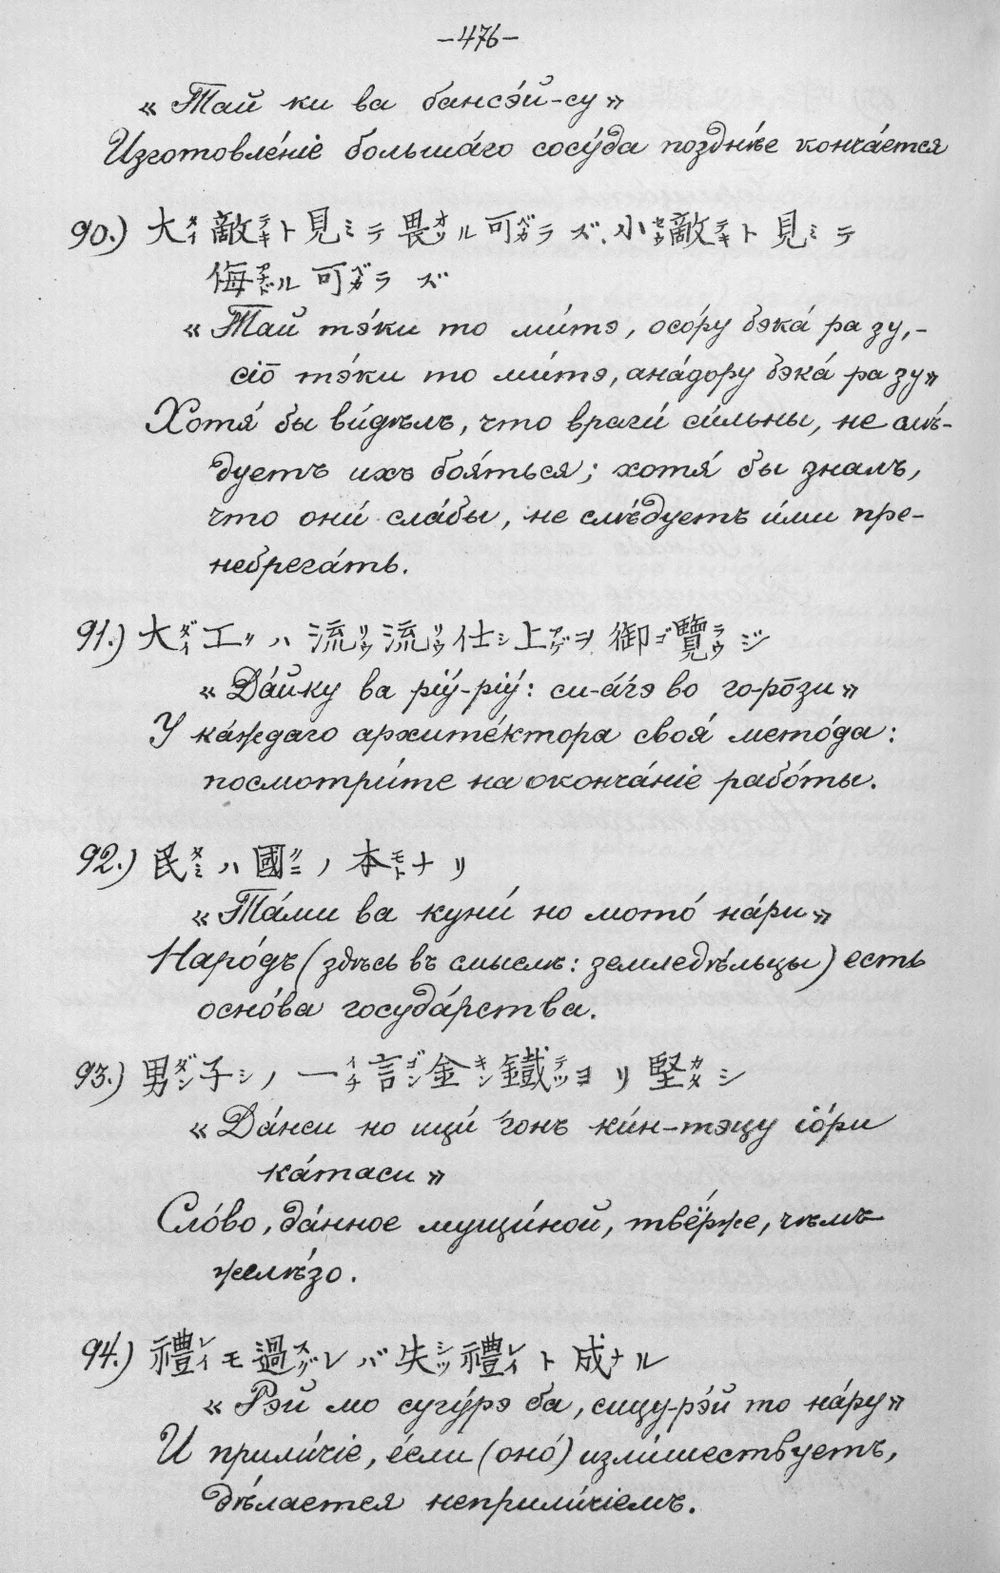 –476–
« Тай ки ва бансэ́й-су »
Изготовле́ніе большáго сосу́да поздне́е кончáется
90.) 大タイ敵テキト見ミテ畏オソル可ベカラズ、小セウ敵テキト見ミテ
侮アナドル可ベカラズ
« Тай тэ́ки то ми́тэ, осо́ру бэкá ра зу,-
сіо̄ тэ́ки то ми́тэ, анáдору бэкá ра зу»
Хотя́ бы ви́дѣлъ, что враги́ си́льны, не слѣ-
дуетъ ихъ боя́ться; хотя́ бы зналъ,
что они́ слáбы, не слѣ́дуетъ и́ми пре-
небрегáть.
91.) 大ダイ工クハ流リウ流リウ仕シ上アゲヲ御ゴ覽ラウジ
« Дáйку ва ріу́-ріу́: си-áгэ во го-ро̄зи »
У кáждаго архите́ктора своя́ мето́да:
посмотри́те на окончáніе рабо́ты.
92.) 民タミハ國クニノ本モトナリ
« Тáми ва куни́ но мото́ нáри »
Наро́дъ (здѣсь въ смыслѣ: земледѣ́льцы) есть
осно́ва госудáрства.
93.) 男ダン子シノ一イチ言ゴン金キン鐵テツヨリ堅カタシ
« Дáнси но ици́ гонъ ки́н-тэцу іо́ри
кáтаси »
Сло́во, дáнное мущи́ной, твёрже, чѣмъ
желѣ́зо.
94.) 禮レイモ過スグレバ失シツ禮レイト成ナル
« Рэй мо сугу́рэ ба, сицу-рэ́й то нáру»
И прили́чіе, е́сли (оно́) изли́шествуетъ,
дѣ́лается неприли́чіемъ.